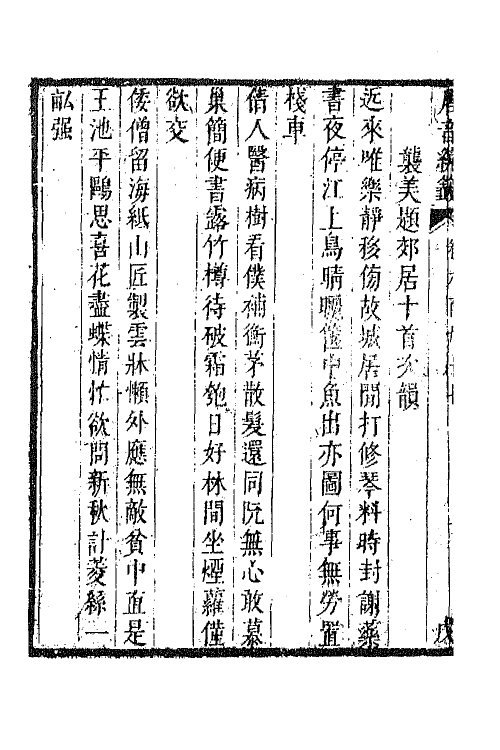 襲美題郊居十首次韻
近來唯樂靜移傍故城居閒打修琴料時封謝藥
書夜停江上鳥晴曬篋中魚出亦圖何事無勞置
棧車
倩人醫病樹看僕補衡茅散髮還同阮無心敢慕
巢簡便書露竹樽待破霜匏日好林間坐煙蘿僅
欲交
倭僧留海紙山匠製雲牀懶外應無敵貧中直是
王池平鷗思喜花盡蝶情忙欲問新秋計菱絲一
畝强